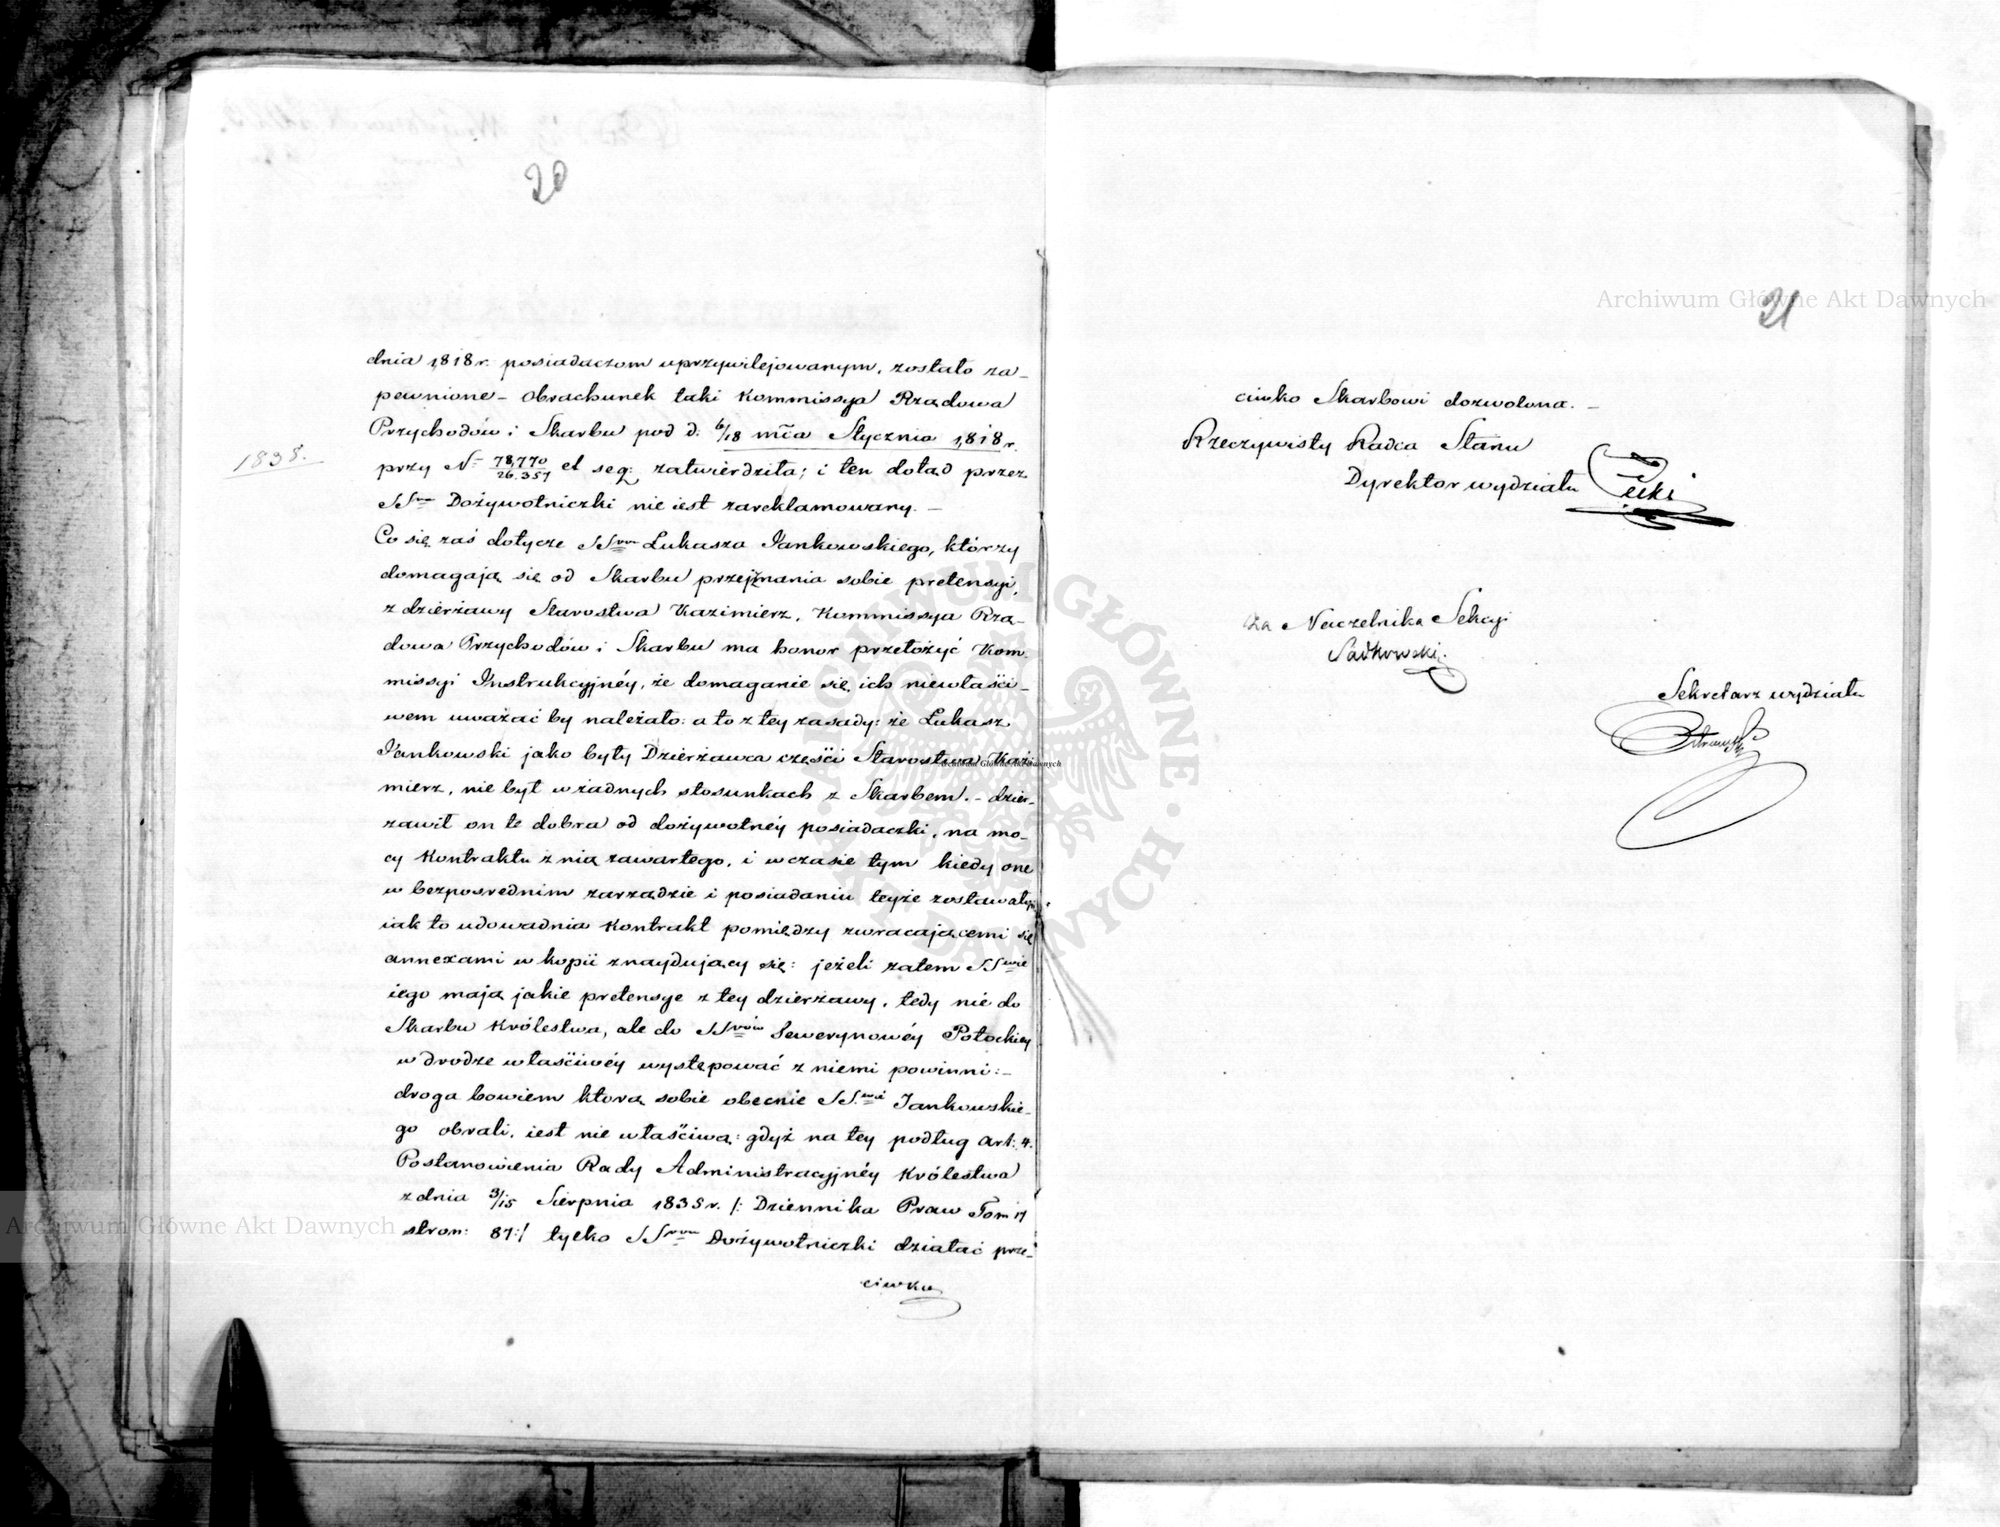 20
dnia 1818 r. posiadaczom uprzywilejowanym, zostało za-
pewnione - Obrachunek taki Kommissya Rządowa
Przychodów i Skarbu pod d. 6/18 mca Stycznia 1818 r.
1838.
przy N 78,770/26.357 et seq: zatwierdziła; i ten dotąd przez
SSrów Dożywotniczki nie iest zareklamowany. -
Co się zaś dotycze SSrów Łukasza Jankowskiego, którzy
domagają się od Skarbu przejmania sobie pretensyi,
z dzierżawy Starostwa Kazimierz, Kommissya Rzą-
dowa Przychodów i Skarbu ma honor przełożyć Kom-
missyi Instrukcyjnéy, że domaganie się ich niewłaści-
wem uważać by należało: a to z tey zasady: że Łukasz
Jankowski jako były Dzierżawca części Starostwa Kazi-
mierz, nie był w żadnych stosunkach z Skarbem. - dzier-
żawił on te dobra od dożywotnéy posiadaczki, na mo-
cy Kontraktu z nią zawartego, i w czasie tym kiedy one
w bezpośrednim zarządzie i posiadaniu teyże zostawały,
iak to udowadnia Kontrakt pomiędzy zwracającemi się
annexami w kopii znaydujący się: jeżeli zatem SSwie
iego mają jakie pretensye z tey dzierżawy, tedy nie do
Skarbu Królestwa, ale do SSrów Sewerynowéy Potockiey
w drodze właściwéy występować z niemi powinni: -
droga bowiem którą sobie obecnie SSwie Jankowskie-
go obrali, iest nie właściwą: gdyż na tey podług art: 4.
Postanowienia Rady Administracyjnéy Królestwa
z dnia 3/15 Sierpnia 1835 r. /: Dziennika Praw Tom 17
stron: 87:/ tylko SSrom Dożywotniczki działać prze-
ciwko
21
ciwko Skarbowi dozwolona. -
Rzeczywisty Radca Stanu
Dyrektor wydziału
za Naczelnika Sekcyi
Sadkowski
Sekretarz wydziału
Archiwum Główne Akt Dawnych
Archiwum Główne Akt Dawnych
Archiwum Główne Akt Dawnych
ARCHIWUM GŁÓWNE AKT DAWNYCH